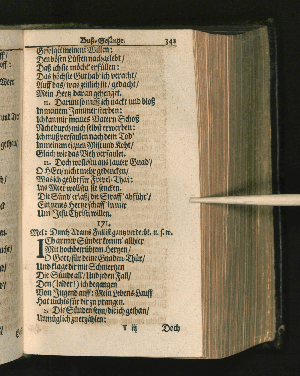 Buß-Gesänge. 341
Gefolget meinem Willen:
Den bösen Lüsten nachgelebt/
Daß ich sie möcht erfüllen:
Das höchste Gut hab ich veracht/
Auff das/ was zeitlich ist/ gedacht/
Mein Hertz daran gehenget.
11. Darum so muß ich nackt und bloß
In meinem Jammer sterben:
Ich kan mir meines Vatern Schoß
Nicht durch mich selbst erwerben:
Ich muß versauffen nach dem Tod/
In meinem eignen Mist und Koht/
Gleich wie das Vieh versaufet.
12. Doch wollstu aus lauter Gnad/
O HErr/ nicht mehr gedencken/
Was ich geübt für Frevel-That:
Ins Meer wollstu sie sencken.
Die Sünd erlaß/ die Straff abführ/
Ein neues Hertze schaff in mir
Um JEsu Christi willen.
171.
Mel: Durch Adams Fall ist gantz verderbt. u. s. w.
ICh armer Sünder komm allhier
Mit hochbetrübtem Hertzen/
O Gott/ für deine Gnaden-Thür/
Und klage dir mit Schmertzen
Die Sünde all/ Und jeden Fall/
Den (leider!) ich begangen
Von Jugend auff: Mein Lebens-Lauff
Hat nichts für dir zu prangen.
2. Die Sünden so ich gethan/
Unmüglich zu erzählen:
Doch